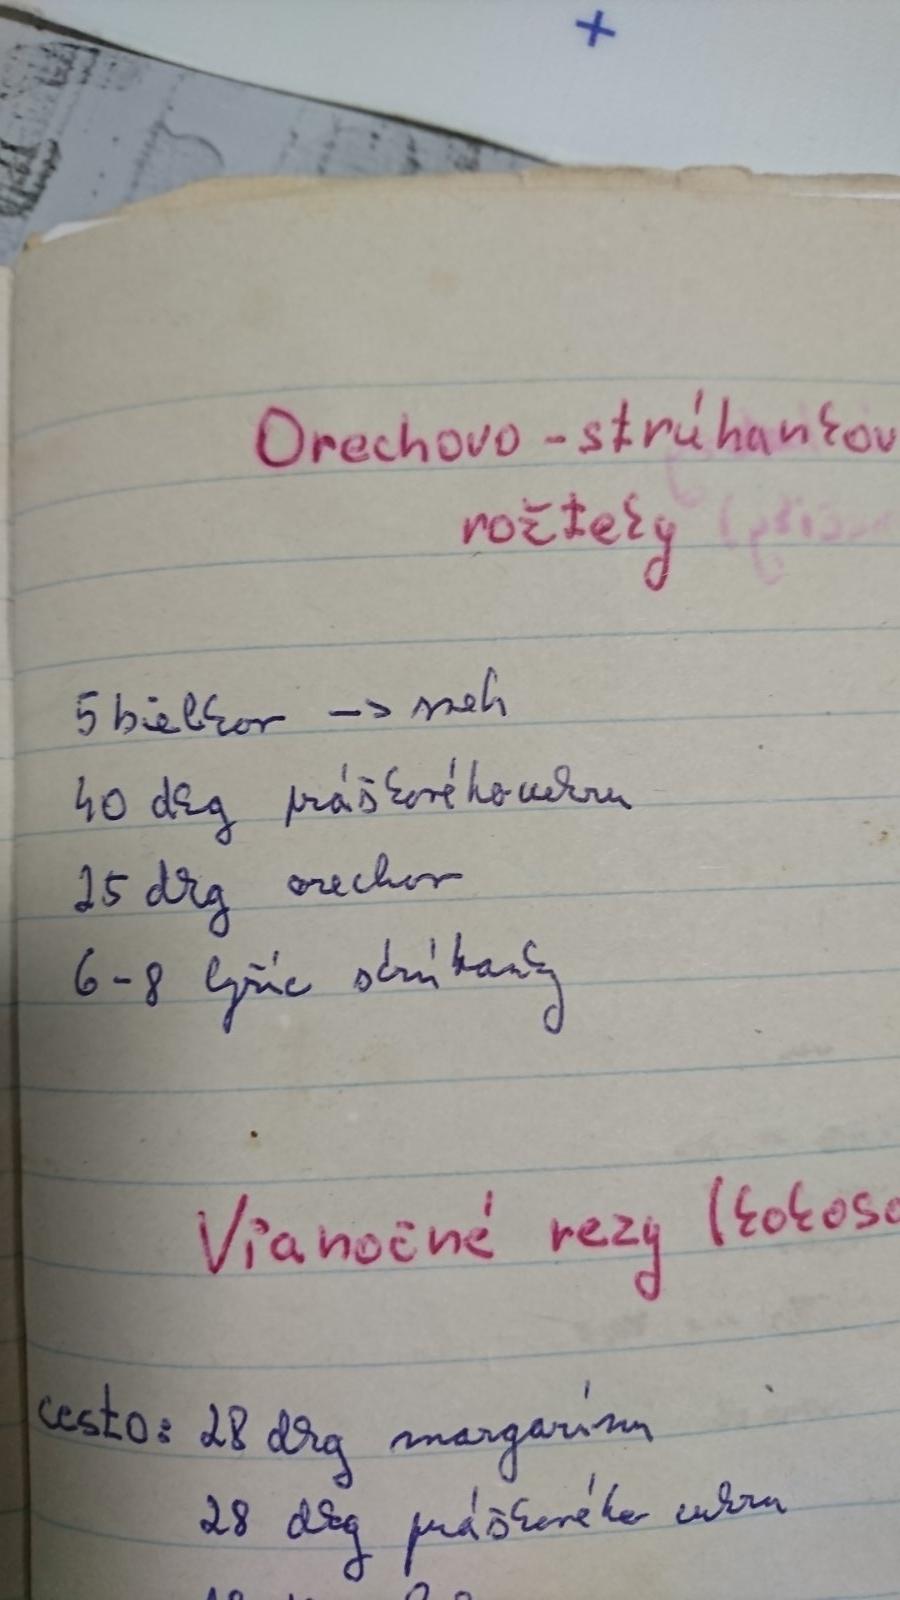 Orechovo - strúhankov
rožteky
5 bielkov -> sneh
40 dkg práškového cukru
25 dkg orechov
6-8 lyžíc strúhanky
Vianočné rezy (kokoso
cesto: 28 dkg margarínu
28 dkg práškového cukru